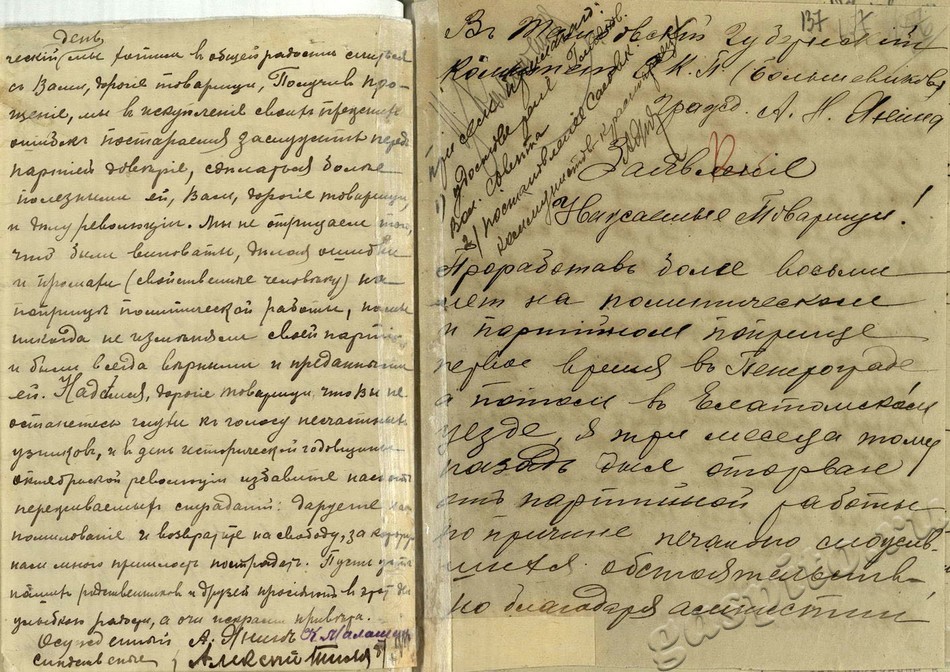 день
ческий мы хотим в общей радости слиться
съ Вами, дорогіе товарищи, Получивъ про-
щеніе, мы в искупленіе своихъ прежнихъ
ошибокъ постараемся заслужить передъ
партіей довѣріе, сдѣлаться болѣе
полезными ей, Вамъ, дорогіе товарищи,
и дѣлу революціи. Мы не отрицаемъ того,
что были виноваты, дѣлая ошибки
и промахи (свойственно человѣку) на
поприщѣ политической работы, но мы
никогда не измѣняли своей партіи
и были всегда вѣрными и преданными
ей. Надѣемся, дорогіе товарищи, что Вы не
останетесь глухи къ голосу несчастныхъ
узниковъ, и в день исторической годовщины
октябрьской революціи избавите насъ отъ
переживаемыхъ страданій: даруете намъ
помилованіе и возвратите на свободу, за которую
намъ много пришлось пострадать. Пусть
нашихъ родственниковъ и друзей в этот
улыбкой радости, а очи искрами
Осужденный А. Янинъ К. Малашкин
Алексей
137
Въ Тамбовский Губернский
комитетъ К.П. (большевиковъ)
гражд. А. Н. Янина
Заявление
Уважаемые Товарищи!
1) удостоверение
Вол. Совета
2) постановление
коммунистов
Проработавъ более восьми
лет на политическом
и партийном поприще
первое время въ Петрограде
а потом в Елатомском
уезде, я три месеца тому
назадъ был оторван
отъ партийной работы
по причине печально сложив-
шихся обстоятельствъ
но благодаря амнистии
gaspito.ru